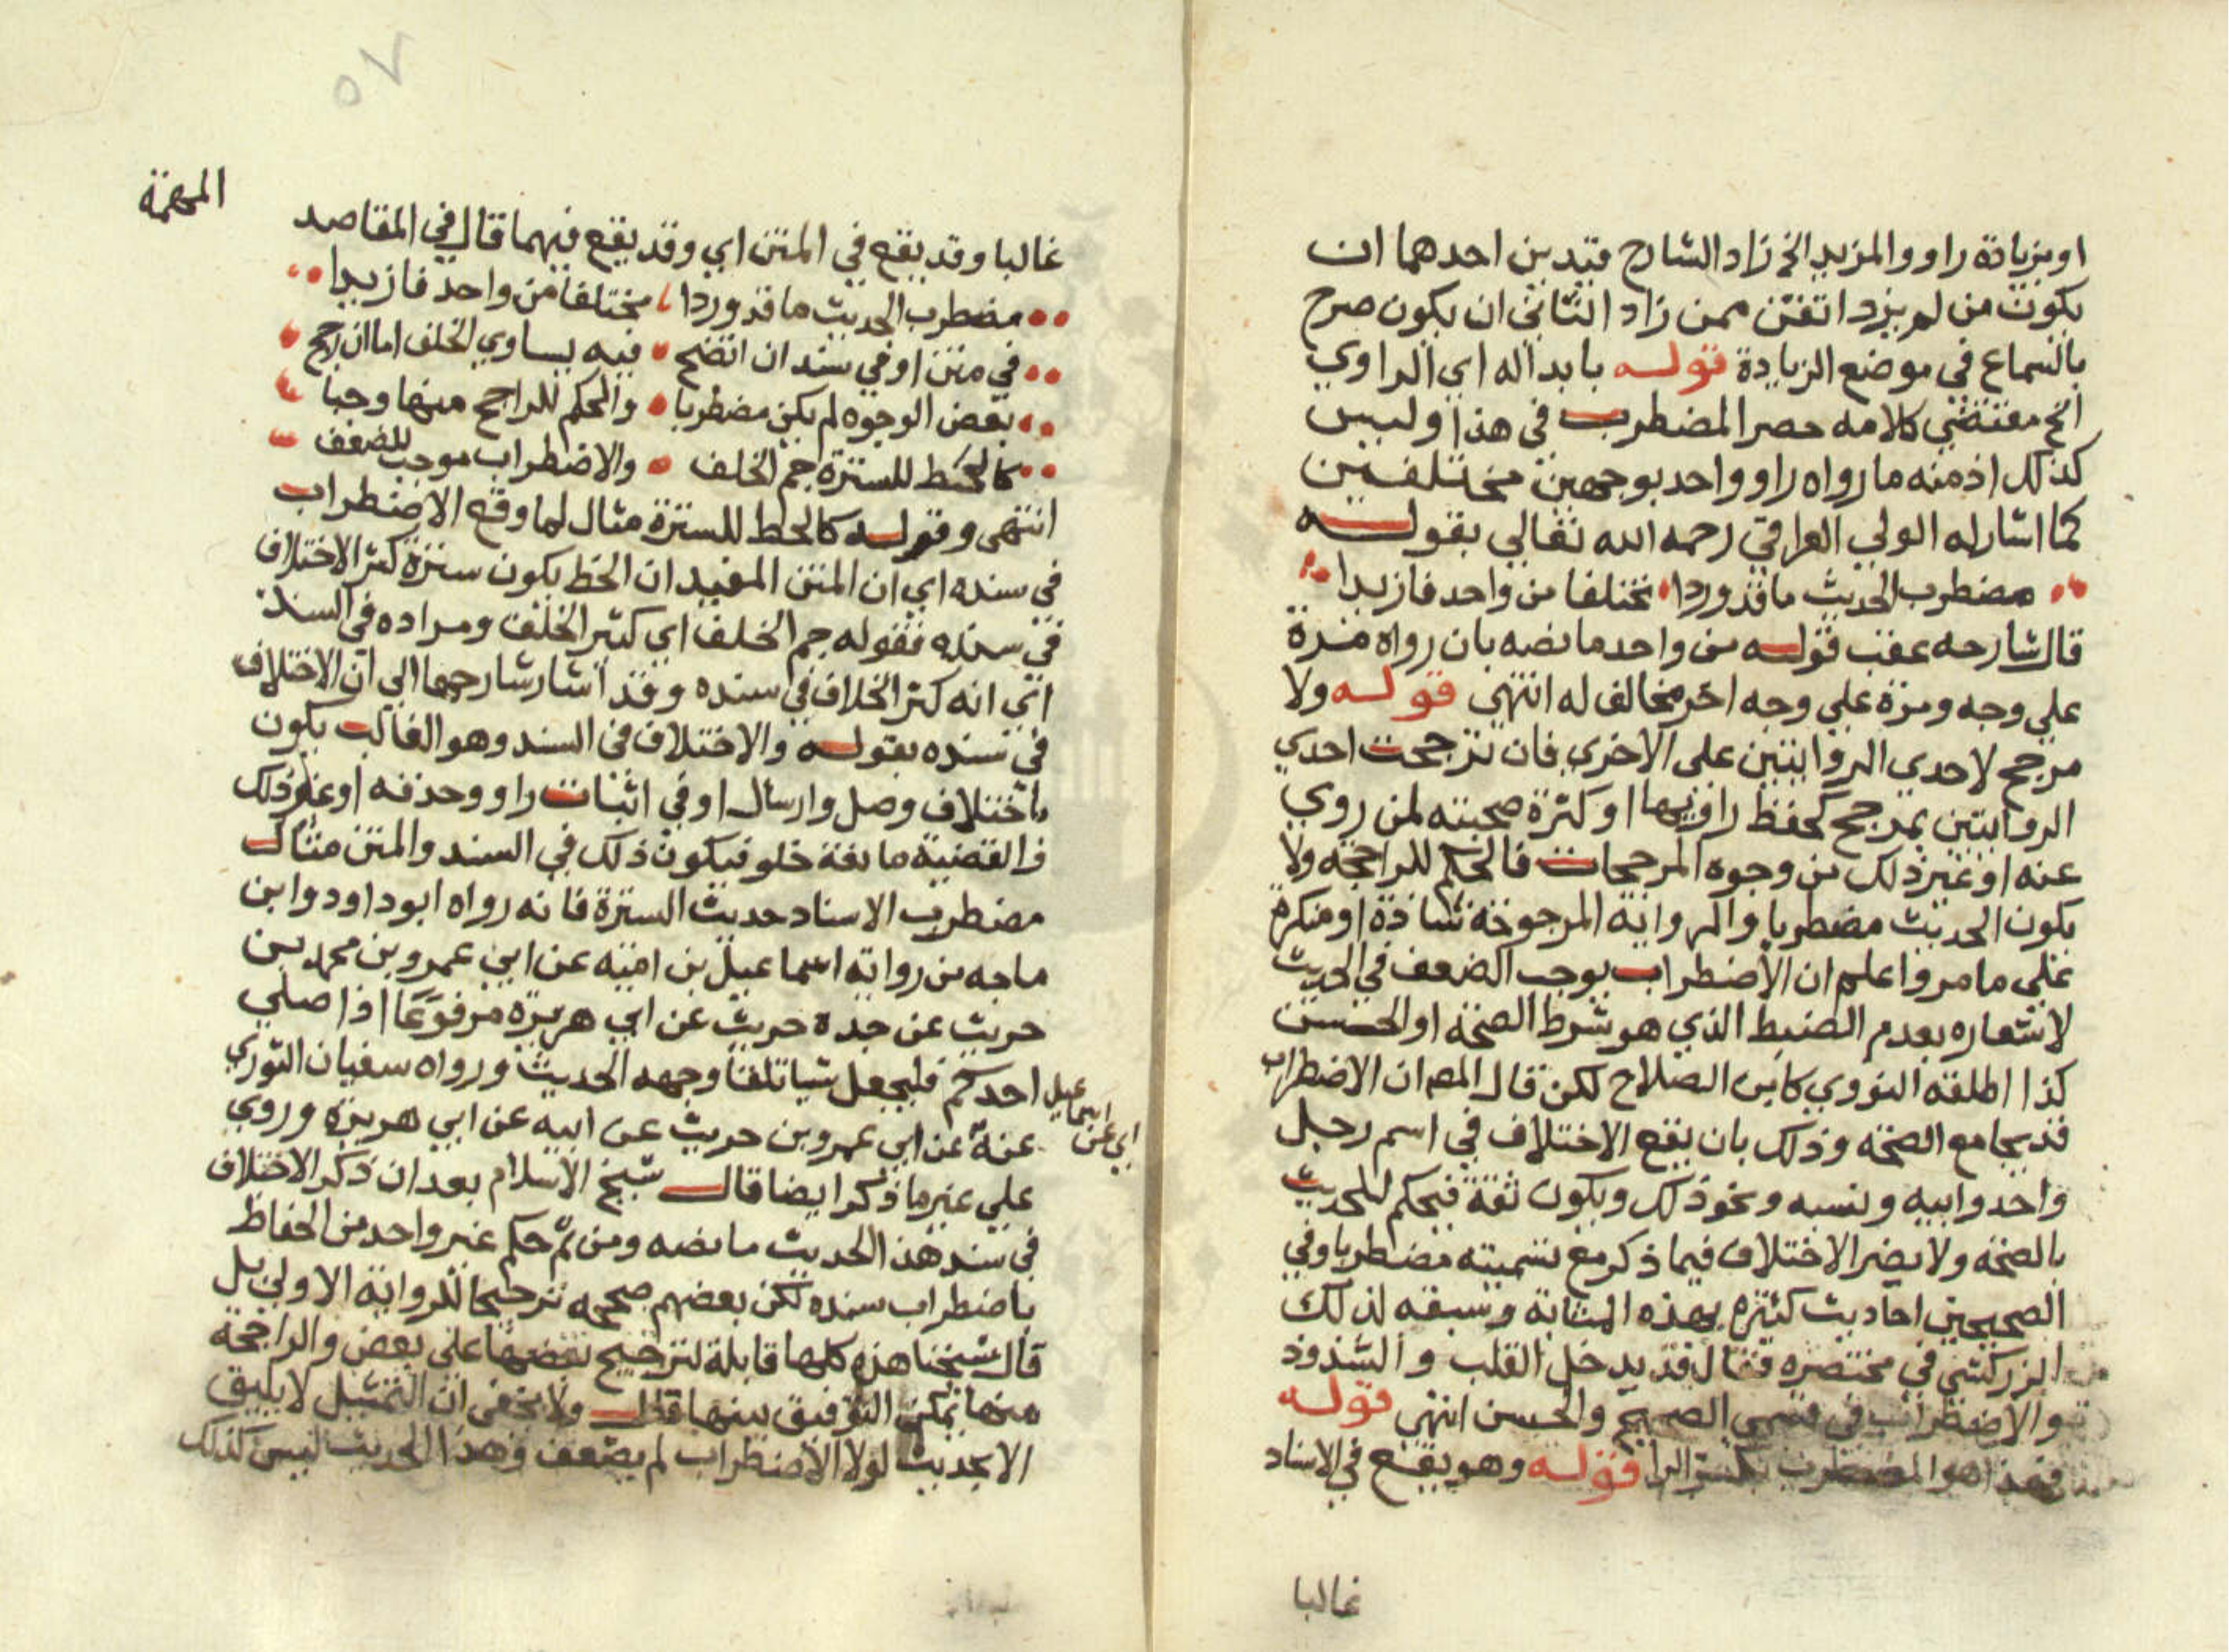 او بزيادة راو والمزيد الخ زاد الشارح قيدين احدهما ان
يكون من لم يزد اتقن ممن زاد الثاني ان يكون صرح
بالسماع في موضع الزيادة قوله بابداله اي الراوي
الخ مقتضي كلامه حصر المضطرب في هذا وليس
كذلك اذ منه ما رواه راو واحد بوجهين مختلفين
كما اشار له الولي العراقي رحمه الله تعالي بقوله
مضطرب الحديث ما قد وردا مختلفا من واحد فازيدا
قال شارحه عقب قوله من واحد ما نصه بان رواه مرة
علي وجه ومرة علي وجه اخر مخالف له انتهى قوله ولا
مرجح لاحدي الروايتين على الاخري فان ترجحت احدي
الروايتين بمرجح كحفظ راويها او كثرة صحبته لمن روي
عنه او غير ذلك من وجوه المرجحات فالحكم للراجحة ولا
يكون الحديث مضطربا والرواية المرجوحة شاذة او منكرة
على ما مر واعلم ان الاضطراب يوجب الضعف في الحديث
لاشعاره بعدم الضبط الذي هو شرط الصحة او الحسن
كذا اطلقه النووي كابن الصلاح لكن قال المص ان الاضطراب
قد يجامع الصحة وذلك بان يقع الاختلاف في اسم رجل
واحد وابيه ونسبه ونحو ذلك ويكون ثقة فيحكم للحديث
بالصحة ولا يضر الاختلاف فيما ذكر مع تسميته مضطربا وفي
الصحيحين احاديث كثيرة بهذه المثابة وسبقه لذلك
الزركشي في مختصره فقال قد يدخل القلب والشذوذ
والاضطراب في قسمي الصحيح والحسن انتهى قوله
فهذا هو المضطرب بكسر الرا قوله وهو يقع في الاسناد
غالبا
المهمة
غالبا وقد يقع في المتن اي وقد يقع فيهما قال في المقاصد
مضطرب الحديث ما قد وردا مختلفا من واحد فازيدا
في متن او في سند ان اتضح فيه يساوي الخلف اما ان رجح
بعض الوجوه لم يكن مضطربا والحكم للراجح منها وجبا
كالخط للسترة جم الخلف والاضطراب موجب للضعف
انتهى وقوله كالخط للسترة مثال لما وقع الاضطراب
في سنده اي ان المتن المفيد ان الخط يكون سترة كثر الاختلاف
في سنده فقوله جم الخلف اي كثير الخلف ومراده في السند
اي انه كثر الخلاف في سنده وقد اشار شارحها الي ان الاختلاف
في سنده بقوله والاختلاف في السند وهو الغالب يكون
باختلاف وصل وارسال او في اثبات راو وحذفه او غير ذلك
فالقضية مانعة خلو فيكون ذلك في السند والمتن مثال
مضطرب الاسناد حديث السترة فانه رواه ابو داود وابن
ماجه من رواية اسماعيل بن امية عن ابي عمرو بن محمد بن
حريث عن جده حريث عن ابي هريرة مرفوعا اذا صلي
احدكم فليجعل شيا تلقا وجهه الحديث ورواه سفيان الثوري
عنه عن ابي عمرو بن حريث عن ابيه عن ابي هريرة وروي
اي عن اسماعيل
علي غير ما ذكر ايضا قال شيخ الاسلام بعد ان ذكر الاختلاف
في سند هذا الحديث ما نصه ومن ثم حكم غير واحد من الحفاظ
باضطراب سنده لكن بعضهم صححه ترجيحا للرواية الاولي بل
قال شيخنا هذه كلها قابلة لترجيح بعضها على بعض والراجحة
منها يمكن التوفيق بينها قال ولا يخفى ان التمثيل لا يليق
الا بحديث لولا الاضطراب لم يضعف وهذا الحديث ليس كذلك